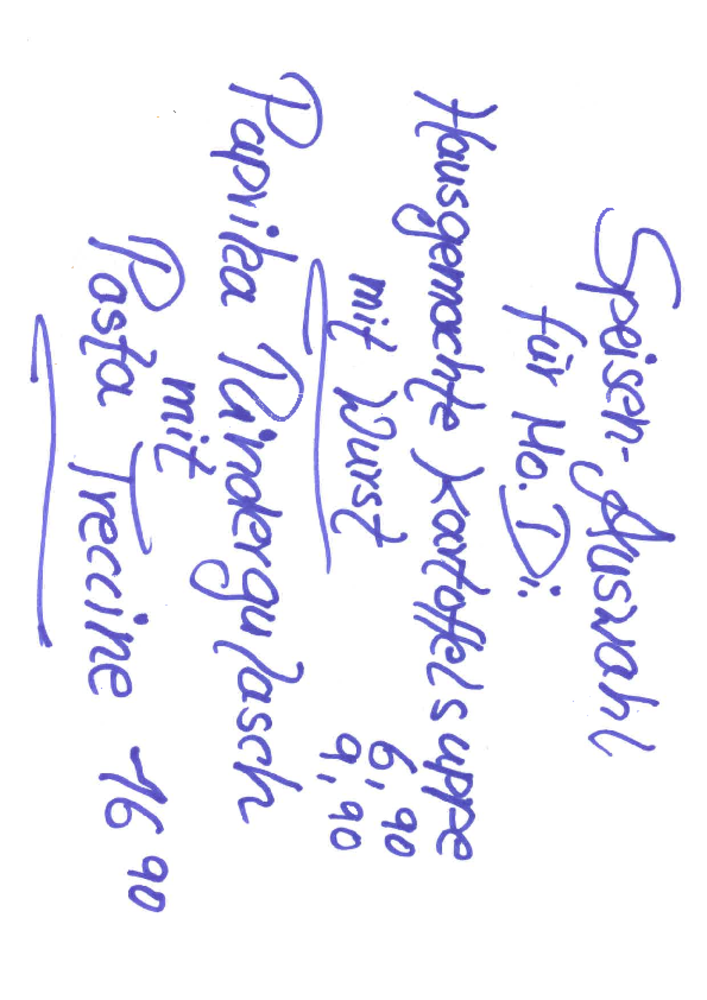 Speisen-Auswahl
für Mo. Di.
Hausgemachte Kartoffelsuppe
6,90
mit Wurst 9,90
Paprika Rindergulasch
mit
Pasta Treccine 16 90